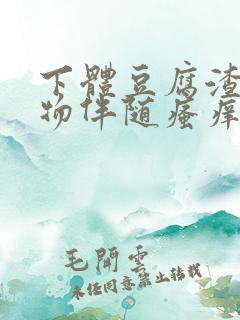 下體豆腐渣
物伴随瘙痒
毛開雲
未经同意禁止转载